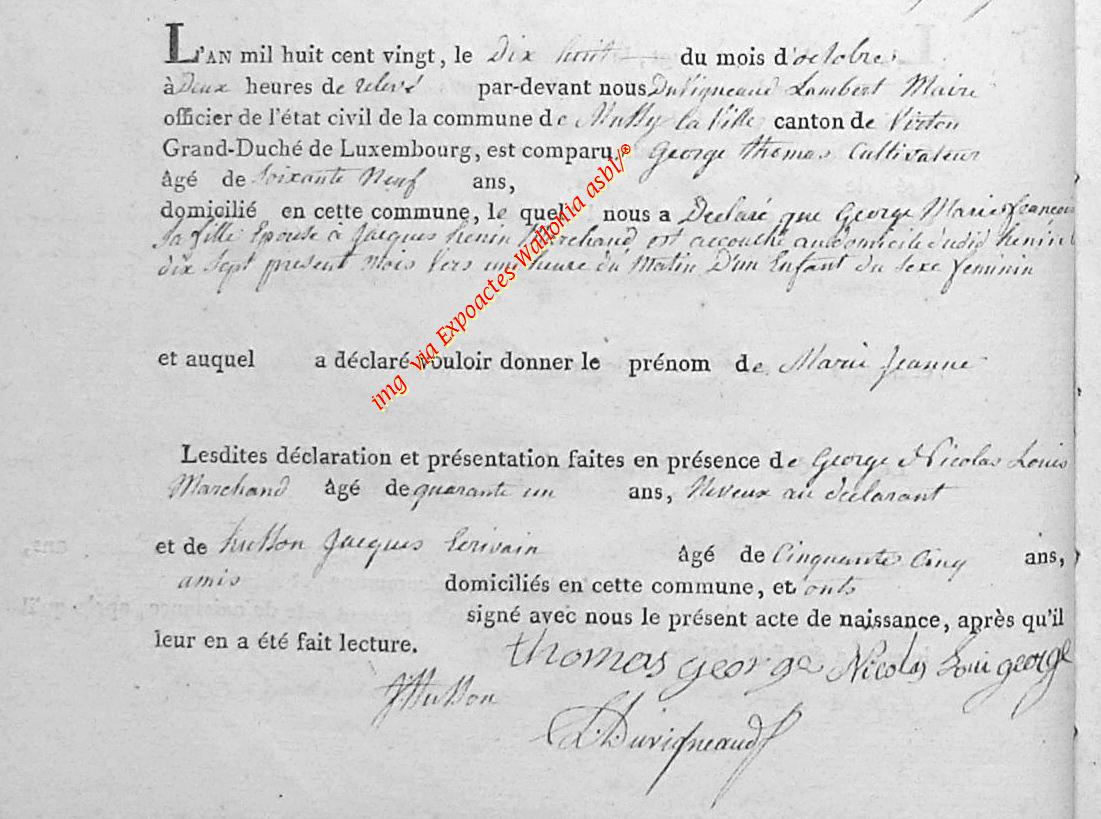 L'AN mil huit cent vingt, le dix huit du mois d'octobre
à Deux heures de relevé par-devant nous Duvigneaud Lambert Maire
officier de l'état civil de la commune de Mussy la Ville canton de Virton
Grand-Duché de Luxembourg, est comparu George thomas Cultivateur
âgé de Soixante Neuf ans,
domicilié en cette commune, le quel nous a Declaré que George Marie francois
sa fille Epouse à Jacques henin Marchand est accouché au domicile dudig henin
dix Sept present mois Vers une heure du Matin D'un Enfant du Sexe feminin
et auquel a déclaré vouloir donner le prénom de Marie Jeanne
Lesdites déclaration et présentation faites en présence de George Nicolas Louis
Marchand âgé de quarante un ans, Neveux au declarant
et de husson Jacques Ecrivain âgé de Cinquante Cinq ans,
amis domiciliés en cette commune, et onts
signé avec nous le présent acte de naissance, après qu'il
leur en a été fait lecture.
thomas george Nicolas Loui george
JHusson
L. Duvigneaud
img via Expoactes Wallonia asbl/®